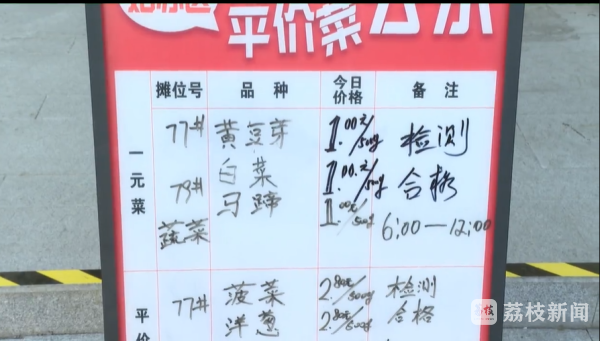 平价菜公示
摊位号 品种 今日价格 备注
一元菜
77# 黄豆芽 1.00元/500g 检测
79# 白菜 1.00元/500g 合格
蔬菜 马蹄 1.00元/500g 6:00—12:00
平价
77# 菠菜 2.80元/500g 检测
洋葱 2.80元/500g 合格
荔枝新闻